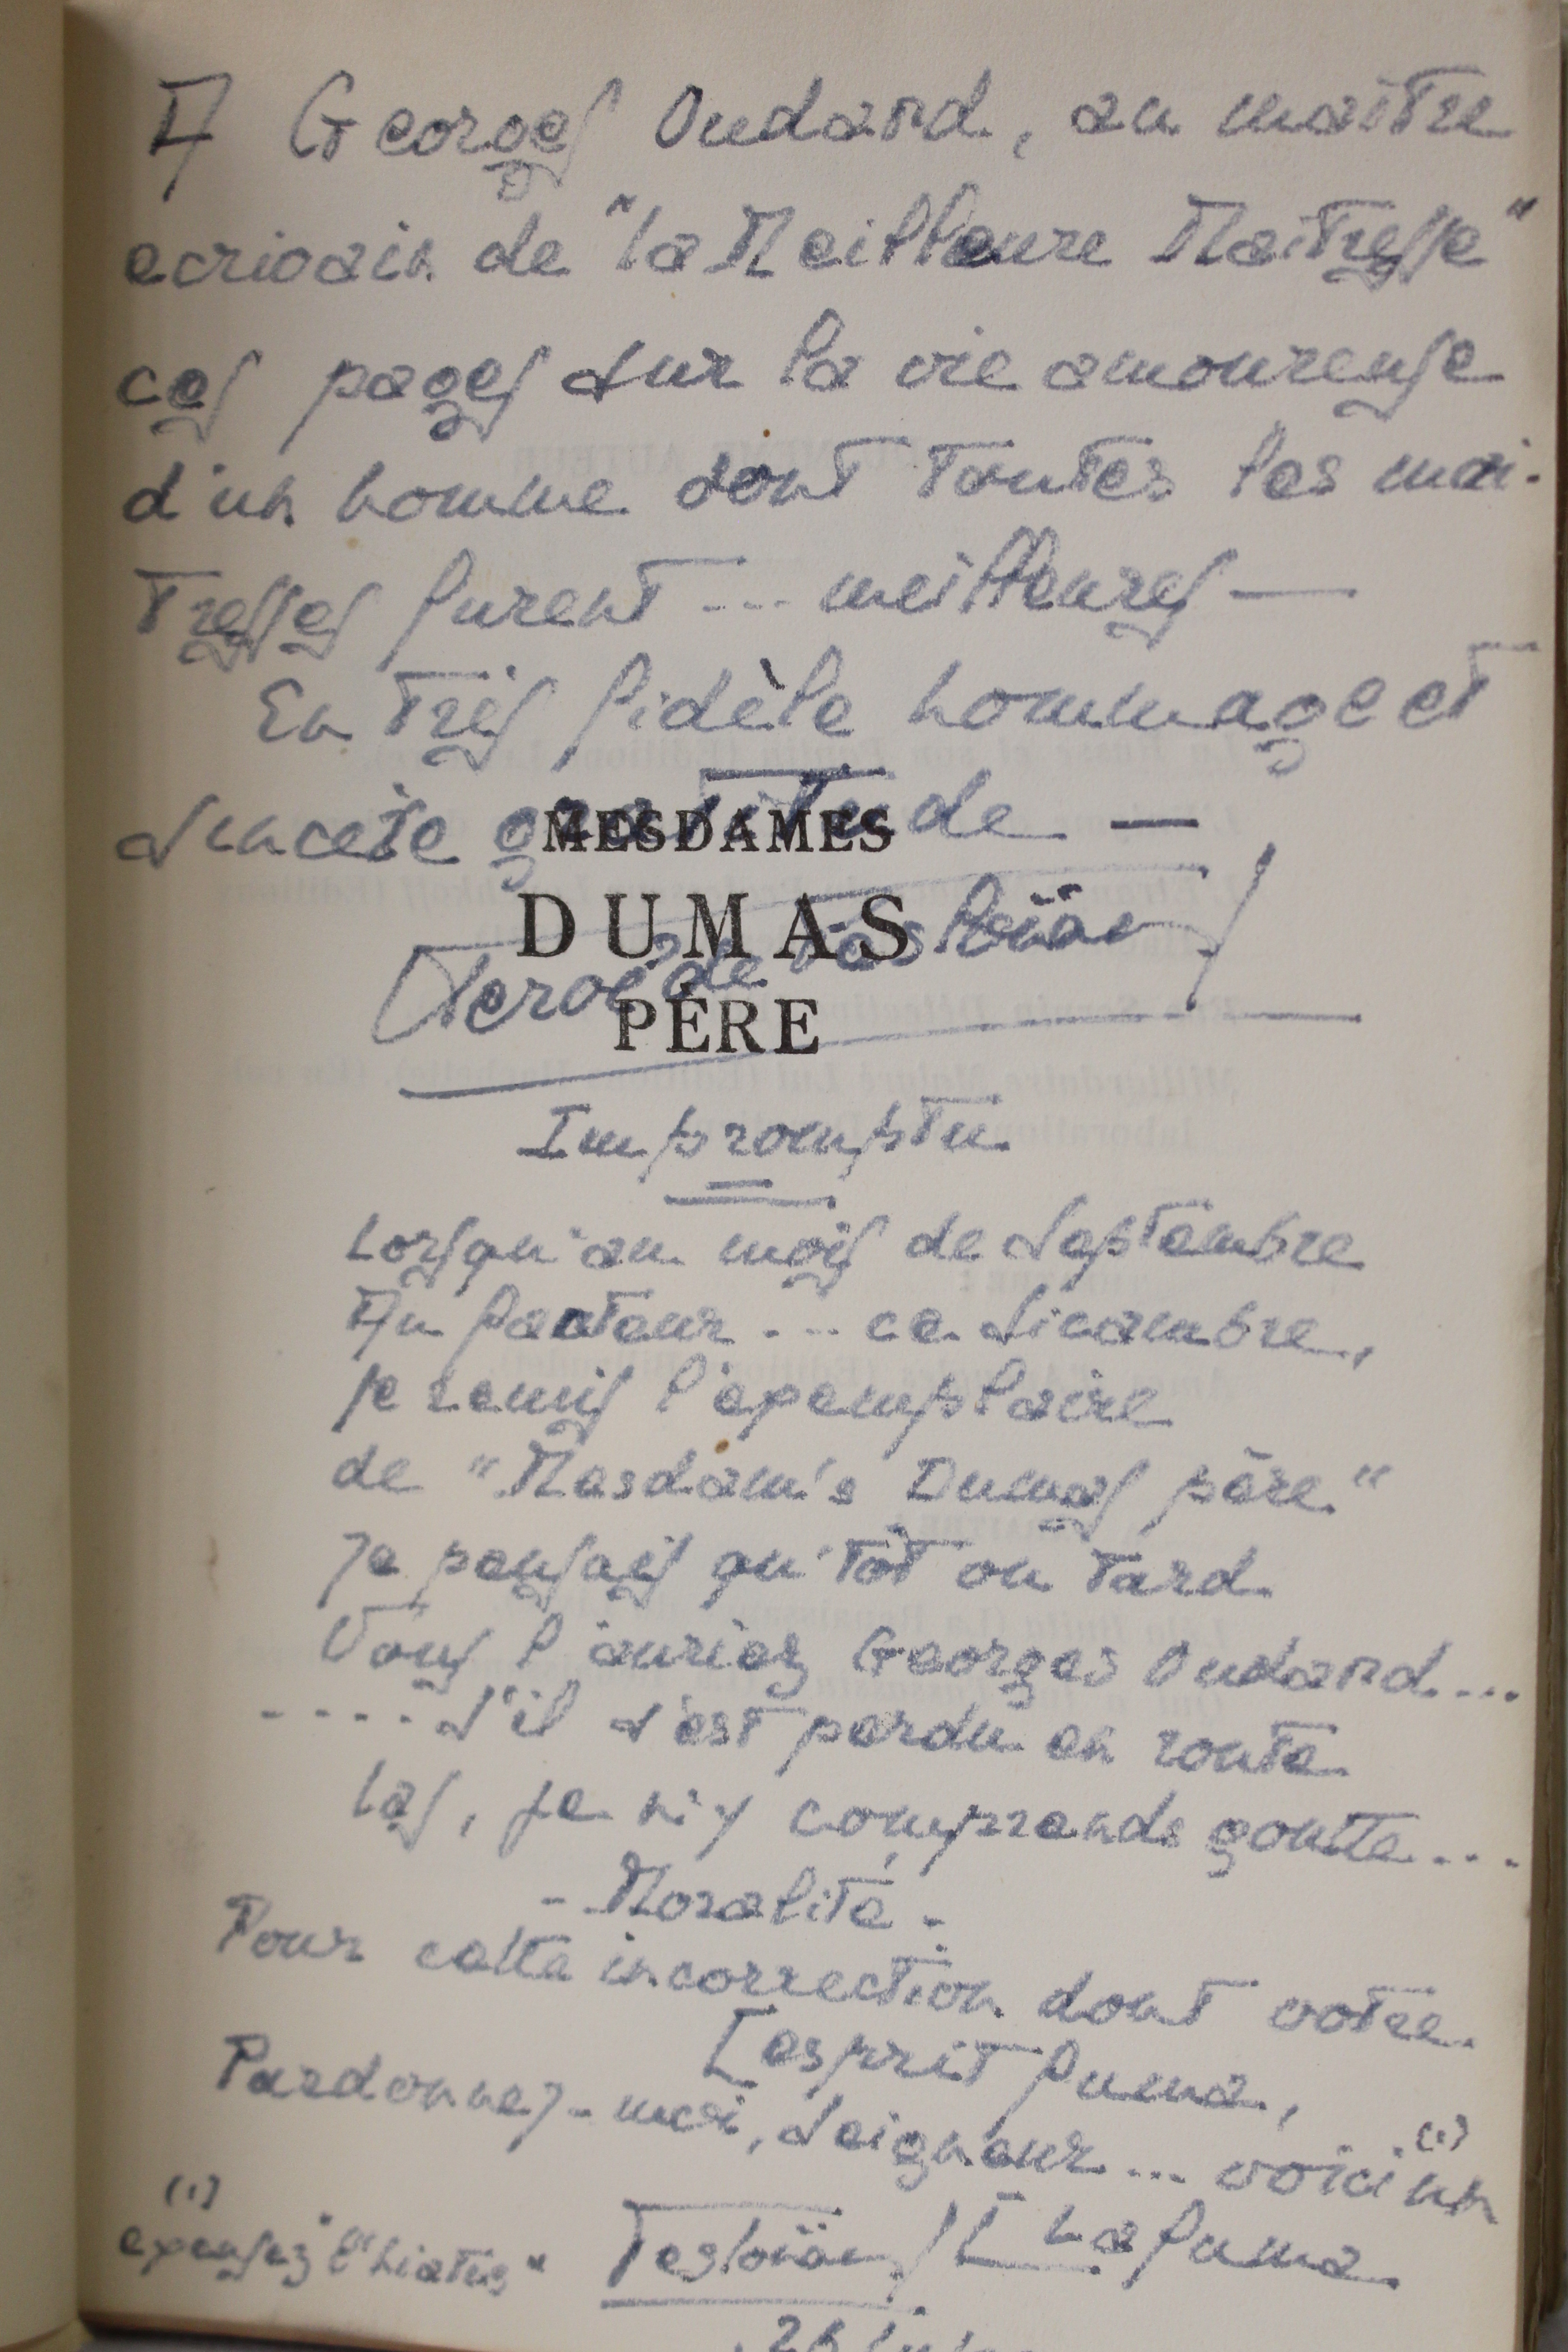 A Georges Oudard, au maitre
ecrivain de "la Meilleure Maitresse"
ces pages sur la vie amoureuse
d'un homme dont toutes les mai-
tresses furent --- meilleures —
En très fidèle hommage et
sincère gratitude —
MESDAMES
DUMAS
PÈRE
de Tesloïan
Impromptu
Lorsqu'au mois de Septembre
Au facteur --- ce Sicambre,
je remis l'exemplaire
de "Mesdam's Dumas père"
Je pensais qu'tôt ou tard
Vous l'auriez Georges Oudard...
---- S'il s'est perdu en route
Las, je n'y comprends goutte...
- Moralité -
Pour cette incorrection dont votre
[esprit fuma,
Pardonnez-moi, Seigneur... voici un (1)
Tesloïan / [ Lafuma
(1)
excusez "l'hiatus"
26